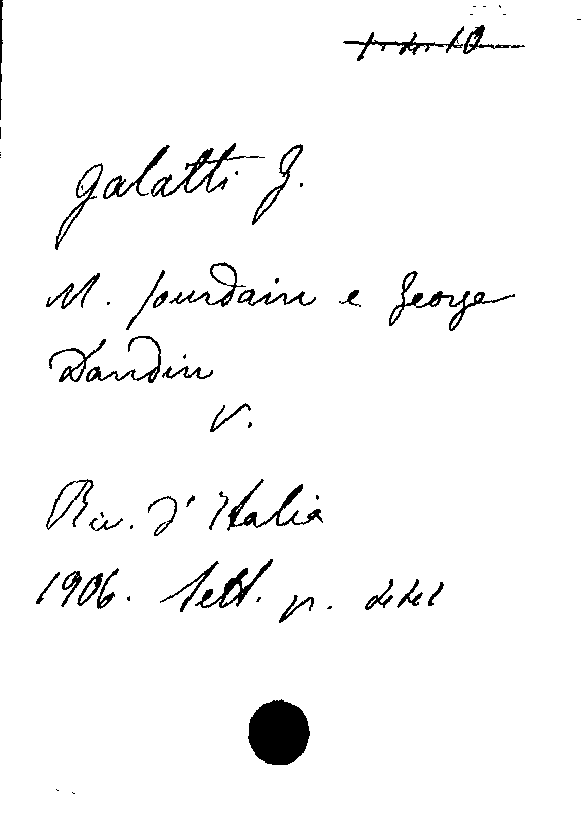 Galatti G.
M. Jourdain e George
Dandin
V.
Riv. d'Italia
1906. Sett. p.